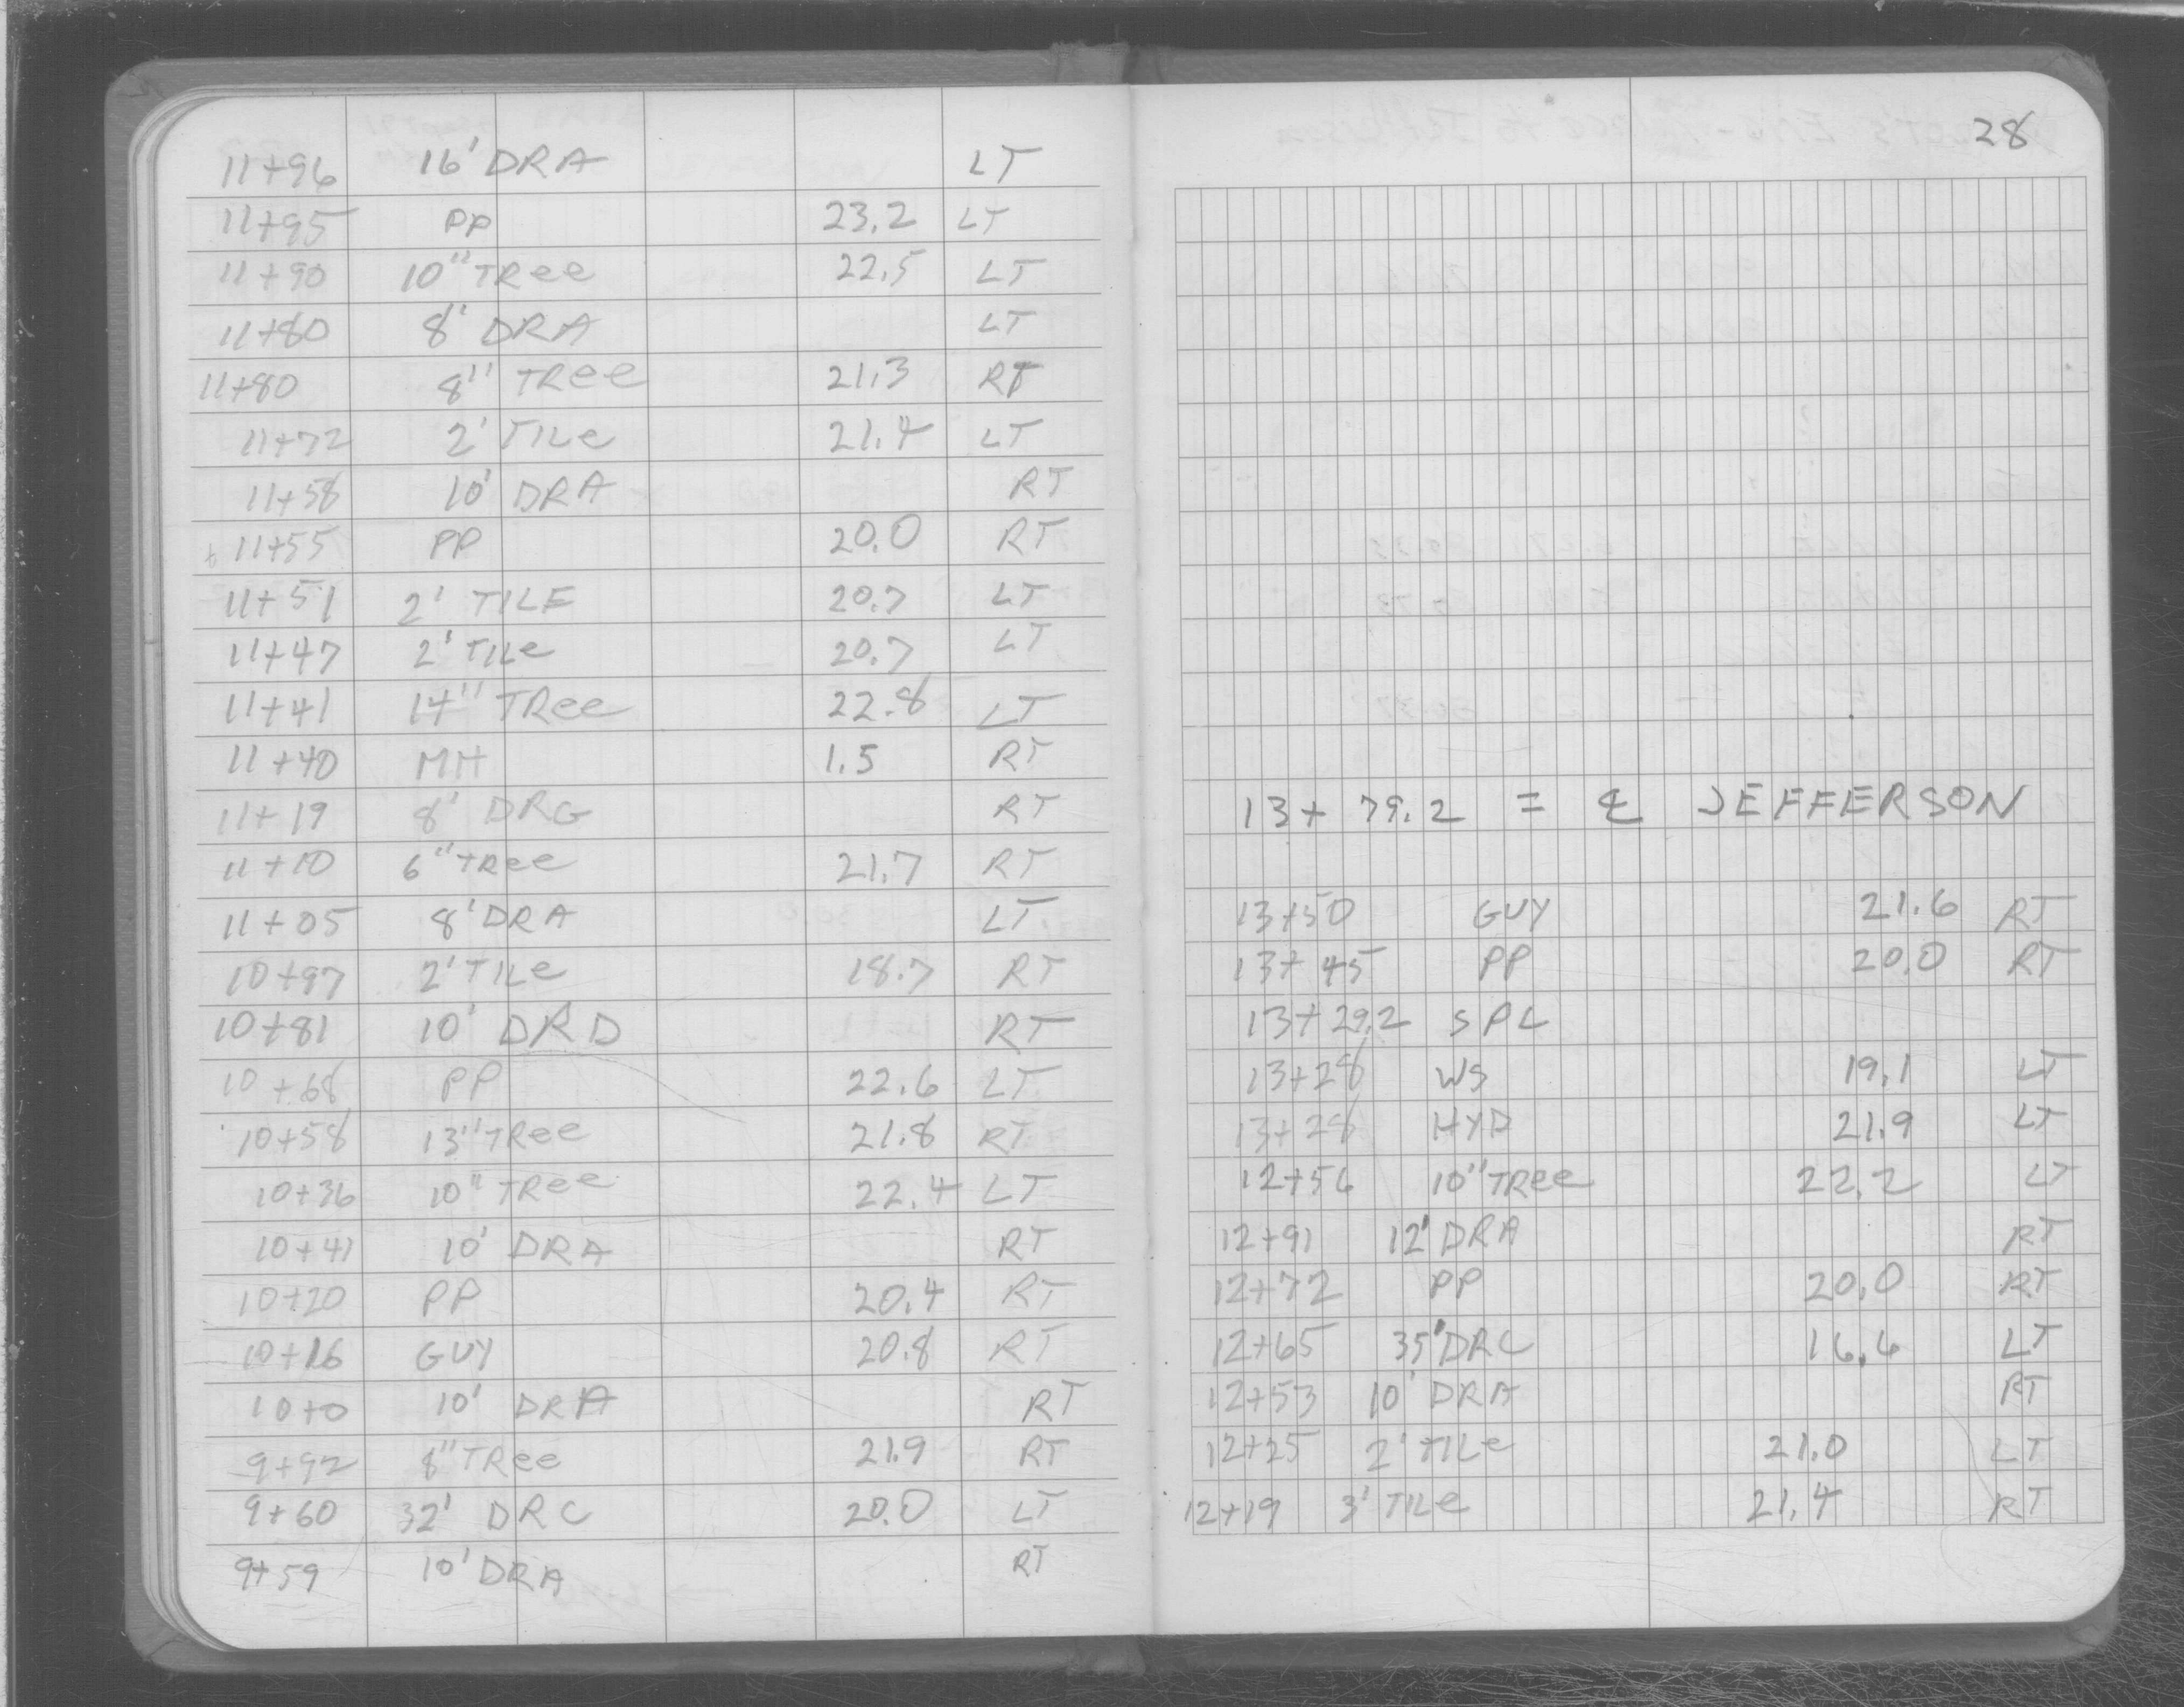 11+96 16' DRA LT
11+95 PP 23.2 LT
11+90 10" TRee 22.5 LT
11+80 8' DRA LT
11+80 8" TRee 21.3 RT
11+72 2' TILe 21.4 LT
11+58 10' DRA RT
11+55 PP 20.0 RT
11+51 2' TILE 20.7 LT
11+47 2' TILe 20.7 LT
11+41 14" TRee 22.8 LT
11+40 MH 1.5 RT
11+19 8' DRG RT
11+10 6" TRee 21.7 RT
11+05 8' DRA LT
10+97 2' TILe 18.7 RT
10+81 10' DRD RT
10+68 PP 22.6 LT
10+58 13" TRee 21.8 RT
10+36 10" TRee 22.4 LT
10+41 10' DRA RT
10+20 PP 20.4 RT
10+16 GUY 20.8 RT
10+0 10' DRA RT
9+92 8" TRee 21.9 RT
9+60 32' DRC 20.0 LT
9+59 10' DRA RT
28
13+79.2 = ℄ JEFFERSON
13+50 GUY 21.6 RT
13+45 PP 20.0 RT
13+29.2 SPL
13+28 WS 19.1 LT
13+28 HYD 21.9 LT
12+56 10" TRee 22.2 LT
12+91 12' DRA RT
12+72 PP 20.0 RT
12+65 35' DRC 16.6 LT
12+53 10' DRA RT
12+25 2' TILe 21.0 LT
12+19 3' TILe 21.4 RT